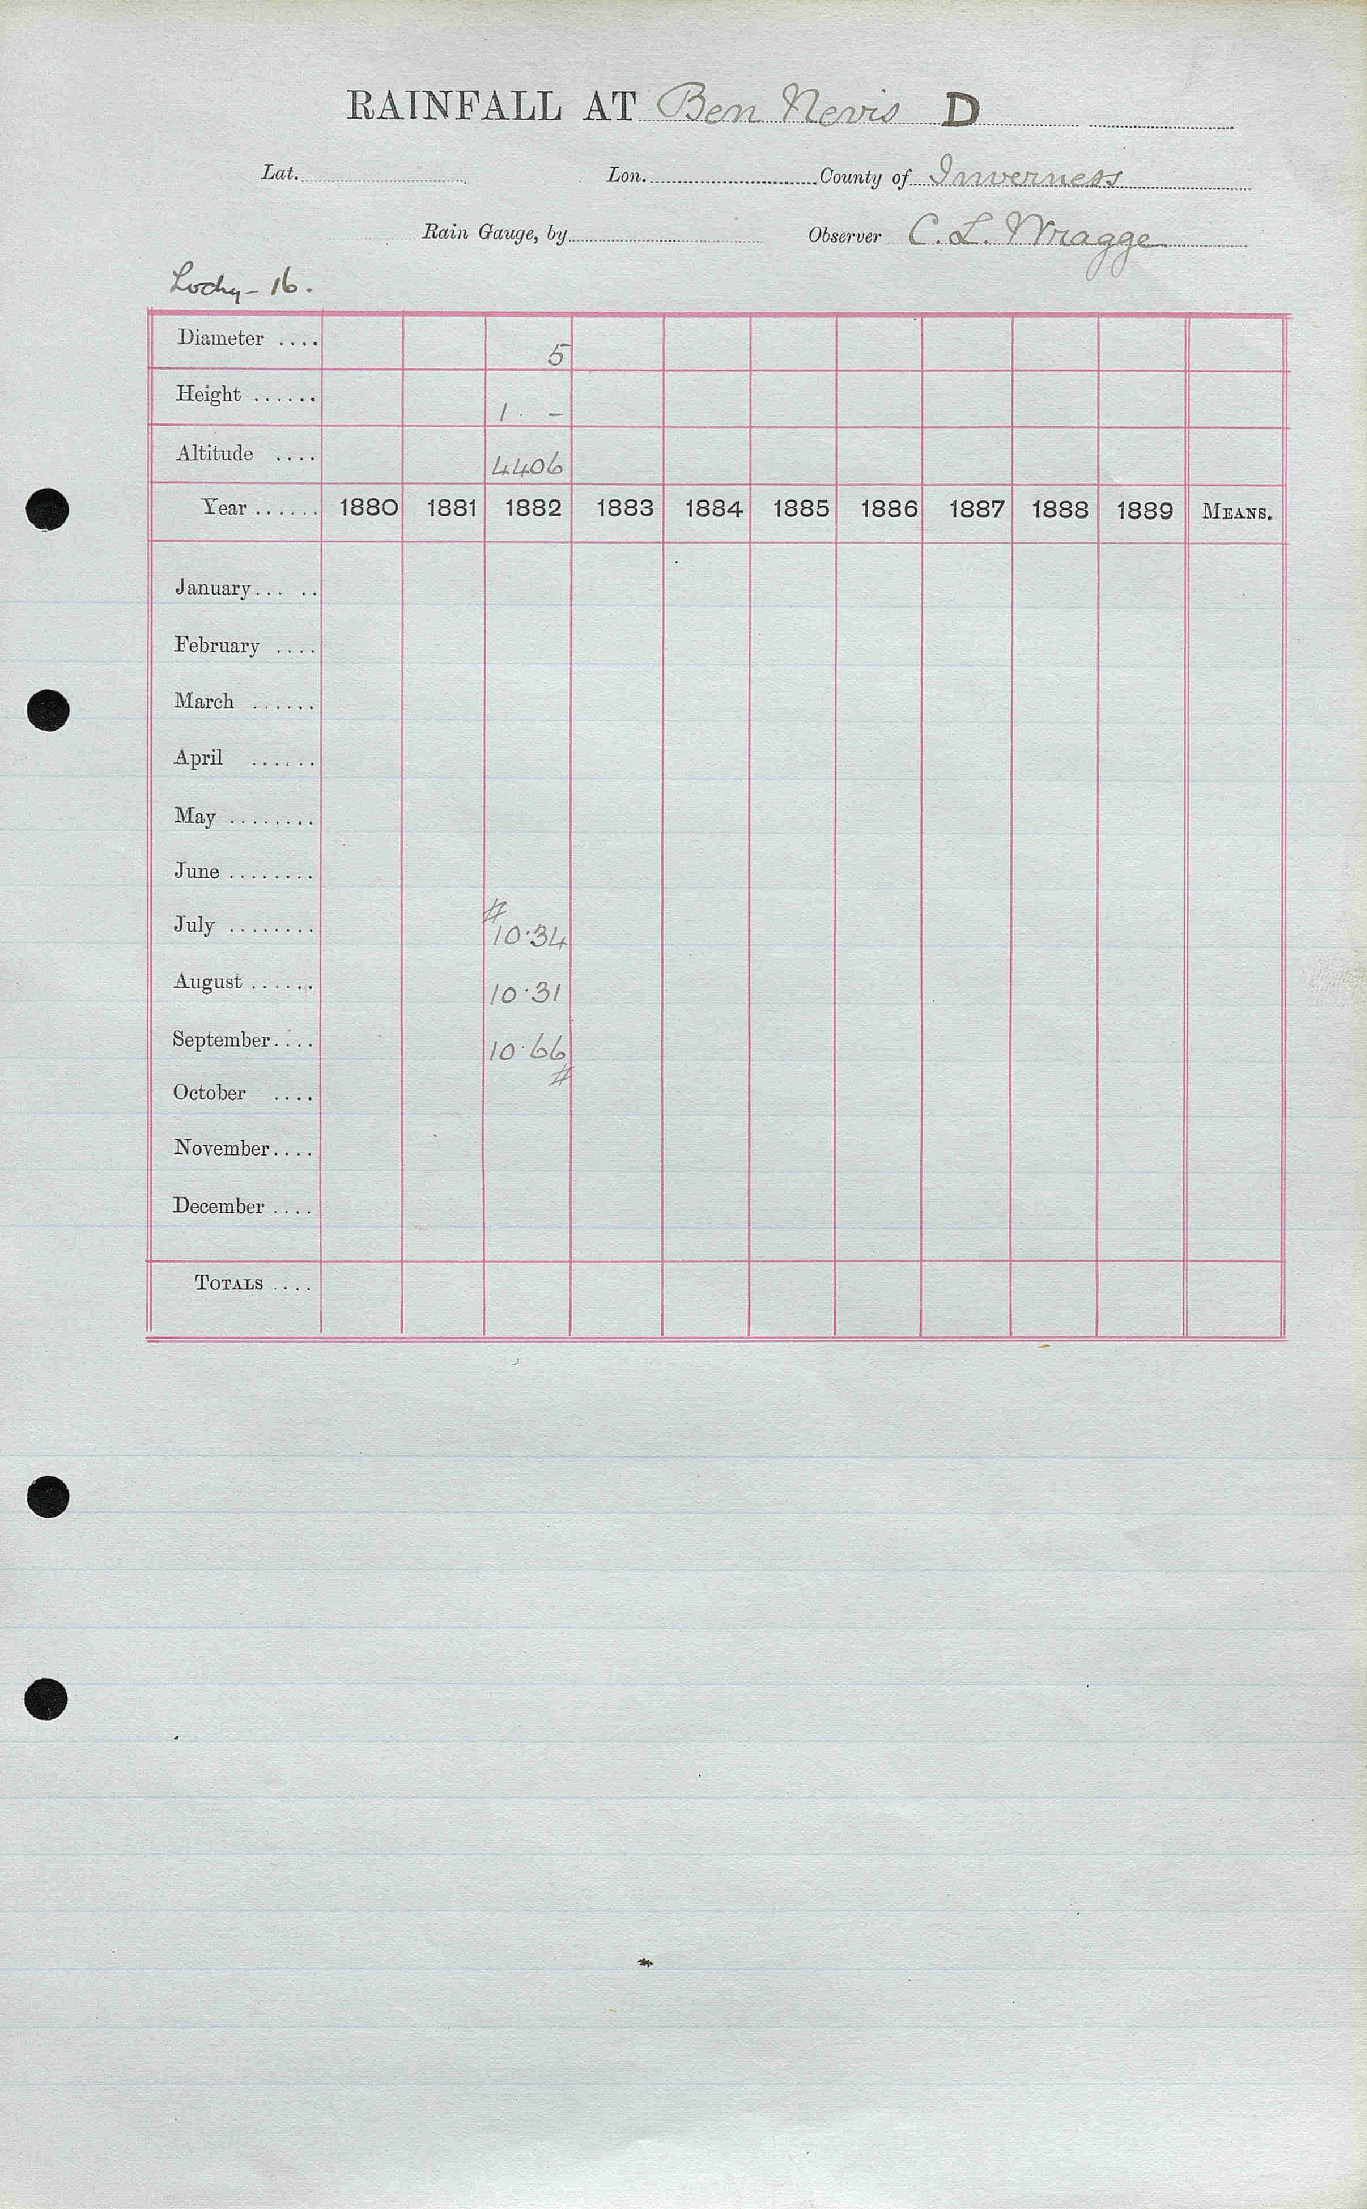 RAINFALL AT Ben Nevis D
Lat. Lon. County of Inverness
Rain Gauge, by Observer C. L. Wragge
Lochy - 16.
Diameter .... 5
Height ...... 1 . -
Altitude .... 4406
Year ...... 1880 1881 1882 1883 1884 1885 1886 1887 1888 1889 MEANS.
January... ..
February ....
March ......
April ......
May ........
June ........
#
July ........ 10.34
August ...... 10.31
September.... 10.66
#
October ....
November....
December ....
TOTALS ....